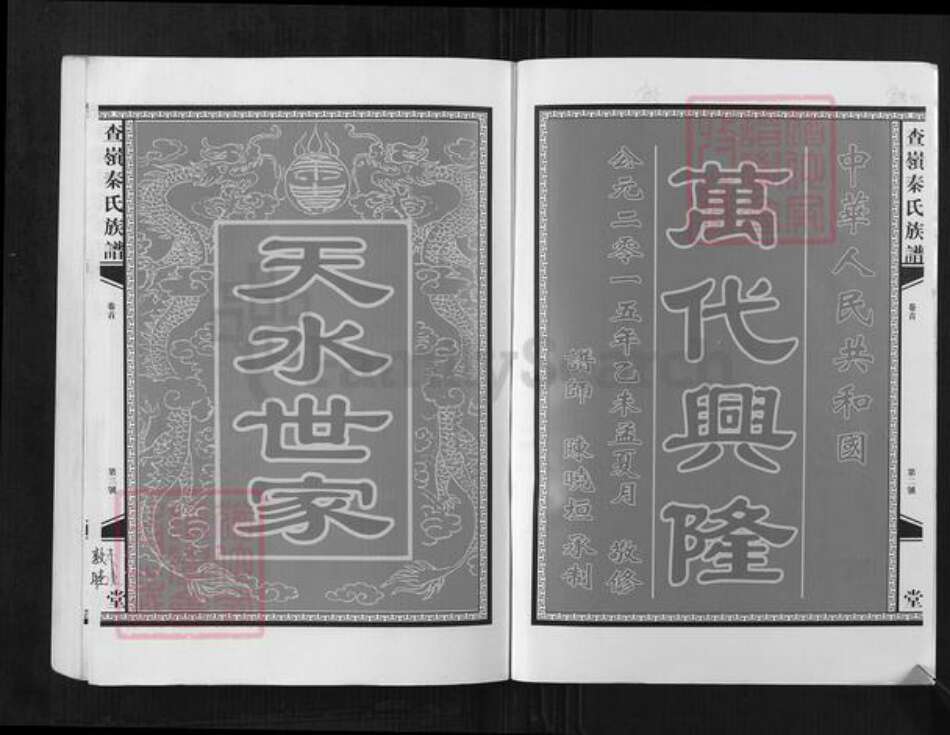 查嶺秦氏族譜
卷首
第二號
堂
中華人民共和國
萬代興隆
公元二零一五年乙未孟夏月 敬修
譜師 陳曉垣 承制
天水世家
查嶺秦氏族譜
卷首
第二號
堂
FamilySearch